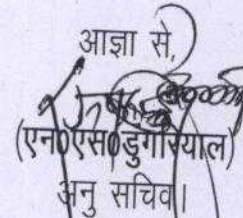 आज्ञा से,
(एन0एस0डुंगरियाल)
अनु सचिव।